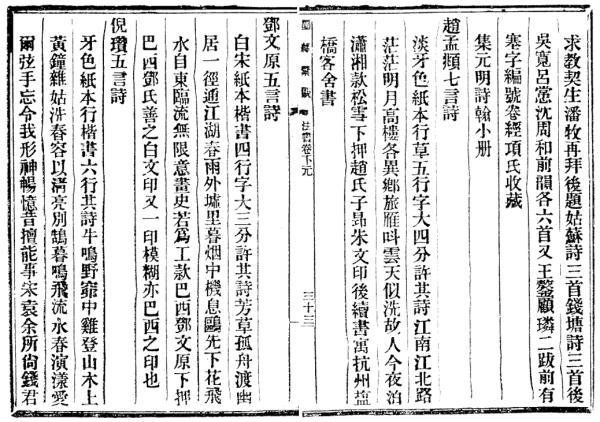 求教契生潘牧再拜後題姑蘇詩三首錢塘詩三首後
吳寬呂㦂沈周和前韻各六首又王鏊顧璘二跋前有
寒字編號卷經項氏收藏
集元明詩翰小册
趙孟頫七言詩
淡牙色紙本行草五行字大四分許其詩江南江北路
茫茫明月高樓各異鄉旅雁呌雲天似洗故人今夜泊
瀟湘款松雪下押趙氏子昂朱文印後續書寓杭州塩
橋客舍書
法書卷下元
三十三
鄧文原五言詩
白宋紙本楷書四行字大三分許其詩芳草孤舟渡幽
居一徑通江湖春雨外墟里暮烟中機息鷗先下花飛
水自東臨流無限意畫史若爲工款巴西鄧文原下押
巴西鄧氏善之白文印又一印模糊亦巴西之印也
倪瓚五言詩
牙色紙本行楷書六行其詩牛鳴野窌中雞登山木上
黃鐘雜姑洗春容以清亮別鵠暮鳴飛流水春演漾愛
爾弦手忘令我形神暢憶昔擅能事宋袁余所尙錢君